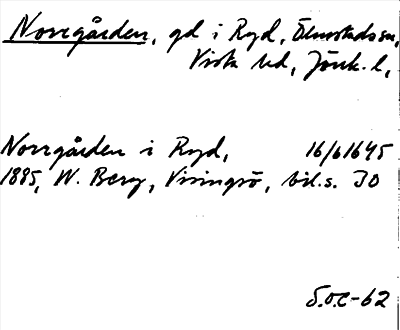 Norrgården, gd i Ryd, Ölmstads sn,
Vista hd, Jönk. l,
Norrgården i Ryd, 16/6 1645
1885, W. Berg, Visingsö, bil.s. 30
S.O.E-62